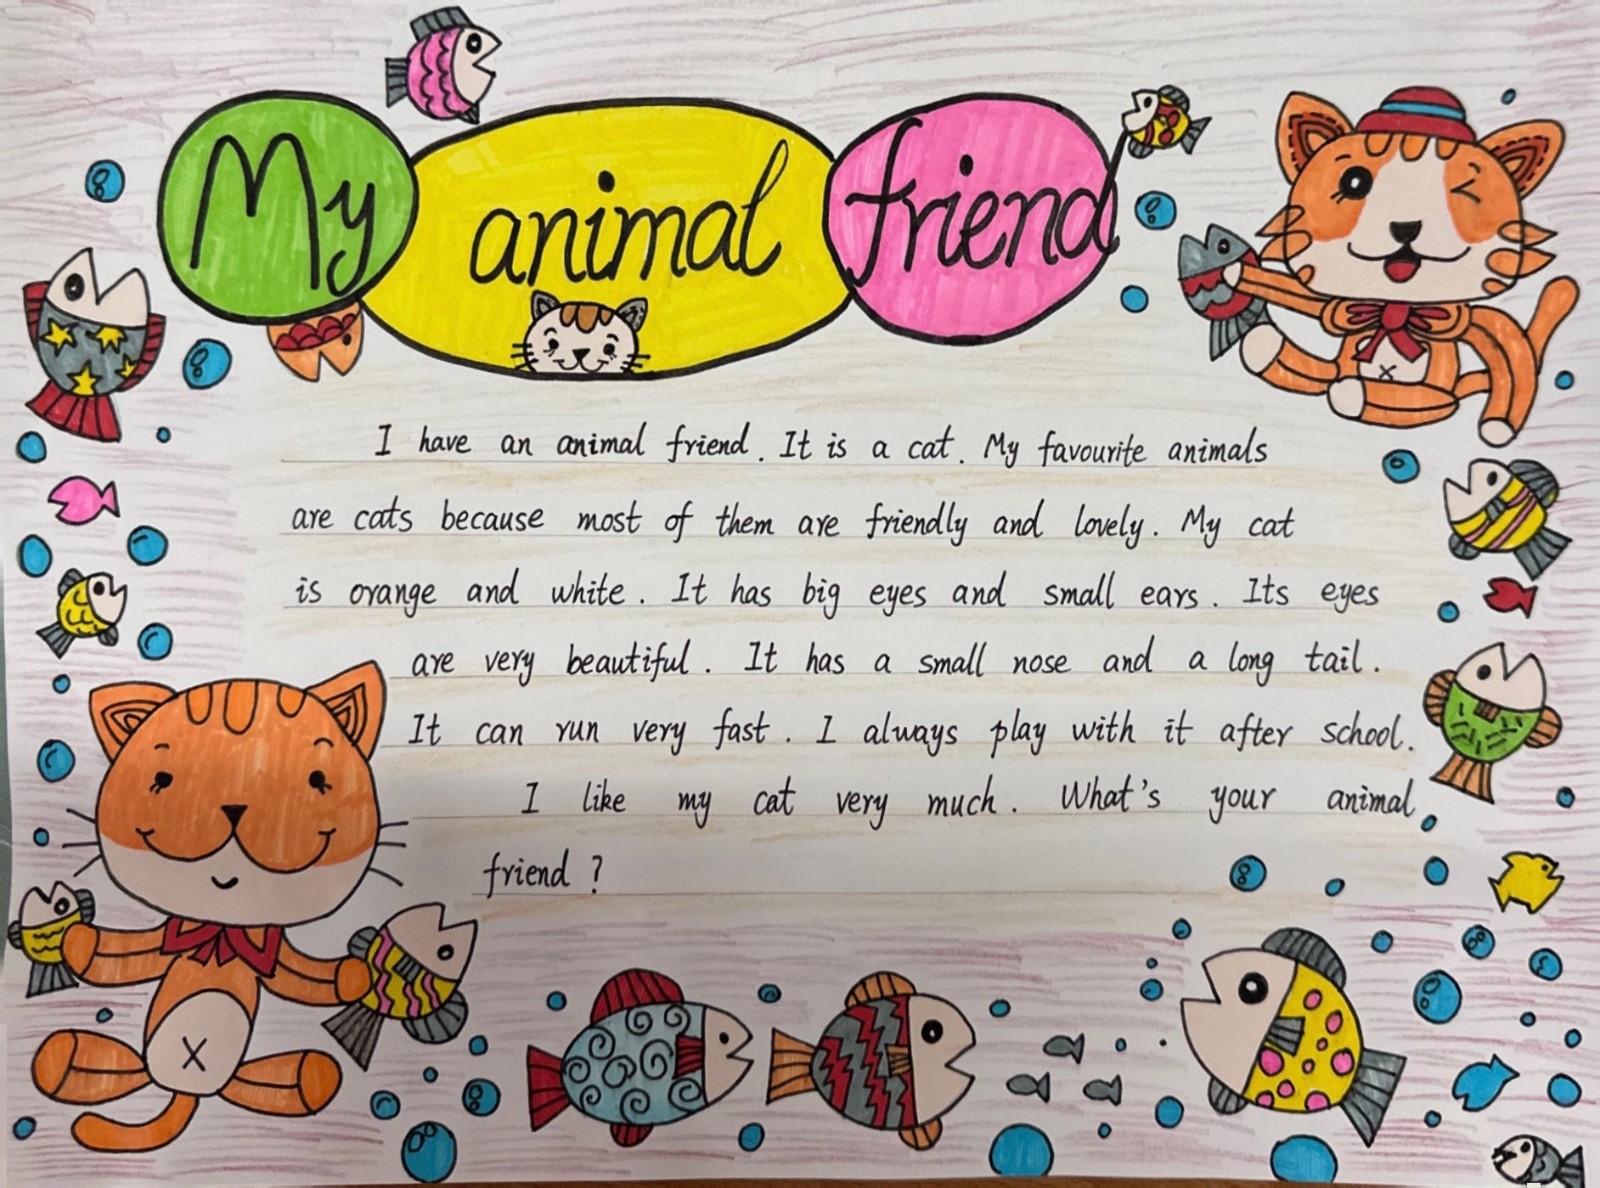 My animal friend
I have an animal friend. It is a cat. My favourite animals
are cats because most of them are friendly and lovely. My cat
is orange and white. It has big eyes and small ears. Its eyes
are very beautiful. It has a small nose and a long tail.
It can run very fast. I always play with it after school.
I like my cat very much. What's your animal
friend?